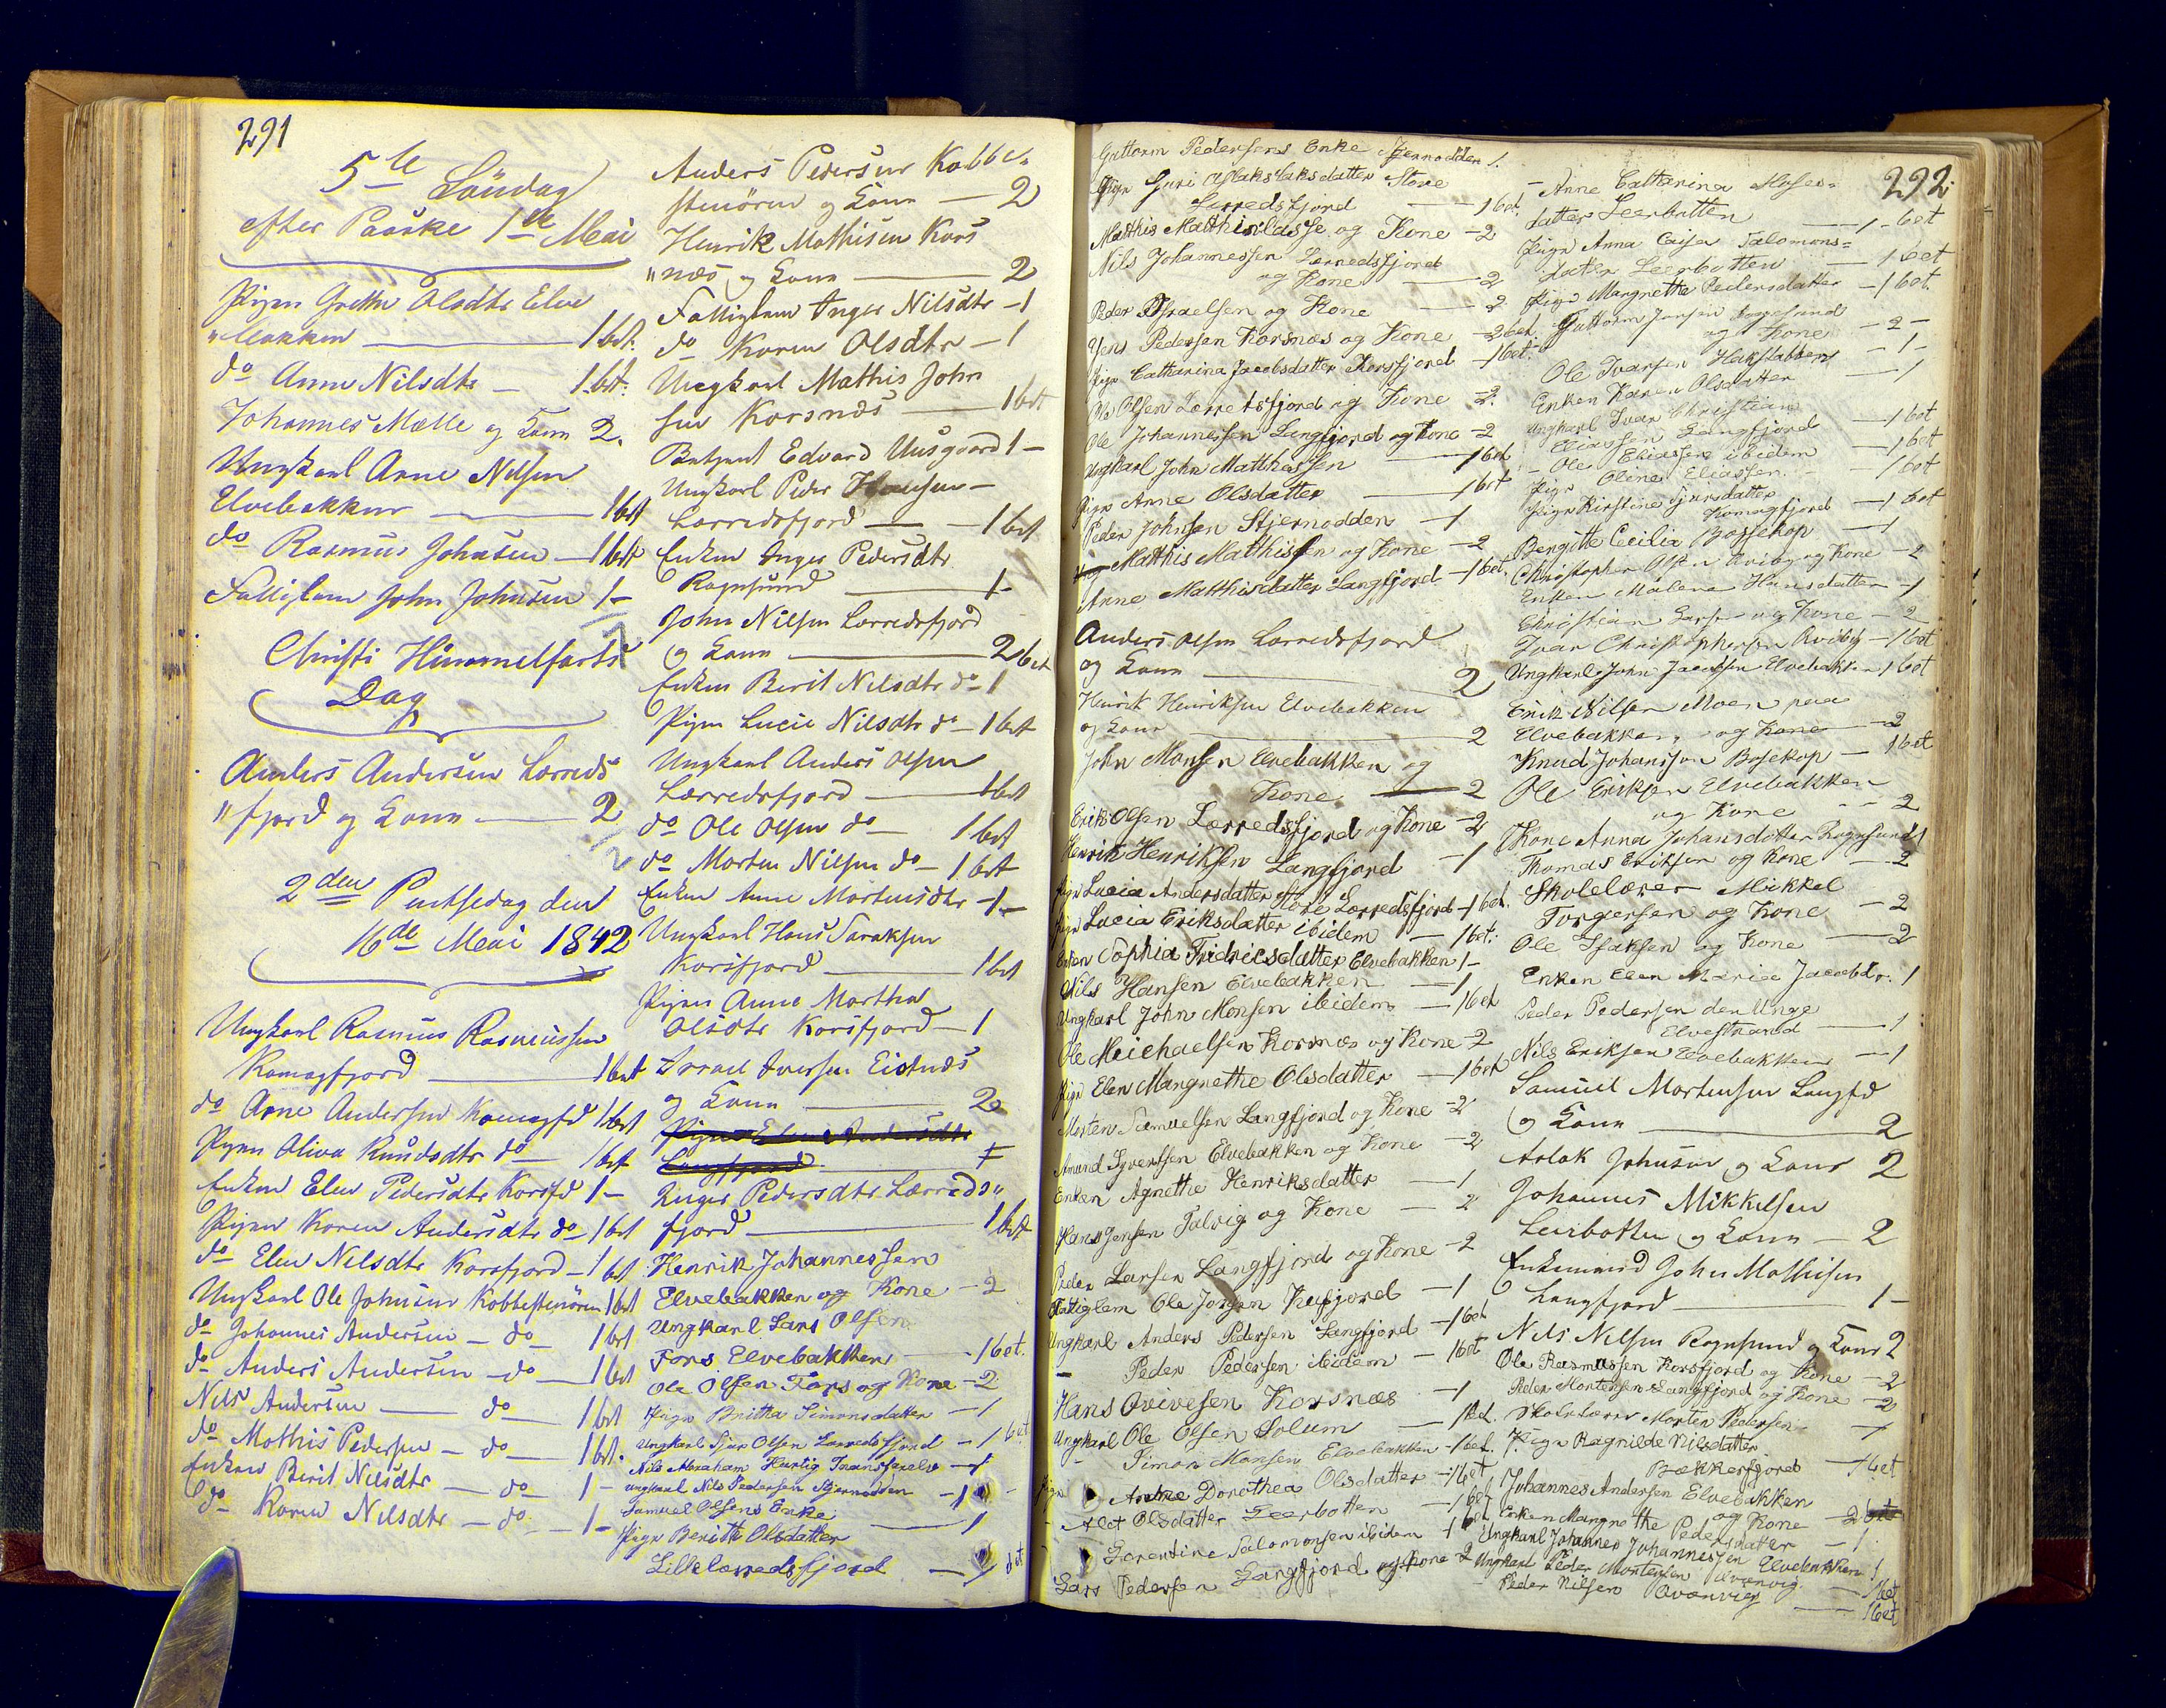 291
5te Söndag
efter Paaske 1ste Mai
Pigen Grethe Olsdtr Elve
"bakken — 1 bet.
do Anne Nilsdtr — 1 bet.
Johannes Mælle og Kone 2.
Ungkarl Arne Nilsen
Elvebakken — 1 bet
do Rasmus Johnsen — 1 bet
Fattiglem John Johnsen 1 —
Christi Himmelfarts
Dag
Anders Andersen Lerreds
"fjord og Kone — 2
2den Pintsedag den
16de Mai 1842
Ungkarl Rasmus Rasmussen
Komagfjord — 1 bet
do Arne Andersen Komagfd 1 bet
Pigen Oliva Knudsdtr do — 1 bet
Enken Elen Pedersdtr Korsfd 1 —
Pigen Karen Andersdtr do 1 bet
do Elen Nilsdtr Korsfjord — 1 bet
Ungkarl Ole Johnsen Kobbestenören 1 bet
do Johannes Andersen — do — 1 bet
do Anders Andersen — do — 1 bet
Nils Andersen — do — 1 bet
do Mathis Pedersen — do — 1 bet.
Enken Berit Nilsdtr — do — 1 —
do Karen Nilsdtr — do — 1 —
Anders Pedersen Kobbe-
stenören og Kone — 2
Henrik Mathisen Kors
"næs og Kone — 2
Fattiglem Inger Nilsdtr — 1
do Karen Olsdtr — 1
Ungkarl Mathis John
sen Korsnæs — 1 bet
Betjent Edvard Uusgaard 1 —
Ungkarl Peder Hansen —
Lerredsfjord — 1 bet
Enken Inger Pedersdtr
Rognsund — 1 —
John Nilsen Lerredsfjord
og Kone — 2 bet
Enken Berit Nilsdtr do — 1
Pigen Lucie Nilsdtr do — 1 bet
Ungkarl Anders Olsen
Lærredsfjord — 1 bet
do Ole Olsen do — 1 bet
do Morten Nilsen do — 1 bet
Enken Anne Mortensdtr — 1 —
Ungkarl Hans Isaksen
Korsfjord — 1 bet
Pigen Anne Martha
Olsdtr Korsfjord — 1
Israel Iversen Eistnæs
og Kone — 2
Pigen Elen Andersdtr
Langfjord — 1
Inger Pedersdtr Lærreds"
fjord — 1 bet
Henrik Johannessen
Elvebakken og Kone — 2
Ungkarl Lars Olsen
Fors Elvebakken — 1 bet.
Ole Olsen Fors og Kone — 2
Pige Britha Simonsdatter — 1
Ungkarl Sjur Olsen Lerredsfjord — 1 bet
Nils Abraham Hertig Tranfarelv — 1
Ungkarl Nils Pedersen Stjernodden — 1
Samuel Olsens Enke — 1
Pige Berith Olsdatter
Lillelærredsfjord — 1 bet
Guttorm Pedersens Enke Stjernodden 1.
Pige Guri Aslakslaksdatter Store
Lerredsfjord — 1 bet.
Matthis Matthislasse og Kone — 2
Nils Johannessen Lerredsfjord
og Kone — 2
Peder Israelsen og Kone — 2
Jens Pedersen Korsnæs og Kone — 2 bet
Pige Catharina Jacobsdatter Korsfjord — 1 bet.
Ole Olsen Lerretsfjord og Kone — 2.
Ole Johannessen Langfjord og Kone — 2
Ungkarl John Matthessen — 1 bet
Pige Anne Olsdatter — 1 bet
Peder Johnsen Stjernodden — 1
Ung Matthis Matthissen og Kone — 2
Anne Matthisdatter Langfjord — 1 bet.
Anders Olsen Lerredsfjord
og Kone — 2
Henrik Henriksen Elvebakken
og Kone — 2
John Monsen Elvebakken og
Kone — 2
Erik Olsen Lærredsfjord og Kone — 2
Henrik Henriksen Langfjord — 1
Pige Lucia Andersdatter Store Lærredsfjord — 1 bet.
Pige Lucia Eriksdatter ibidem — 1 bet.
Enken Sophia Fridricsdatter Elvebakken 1 —
Nils Hansen Elvebakken — 1
Ungkarl John Monsen ibidem — 1 bet
Ole Meichaelsen Korsnæs og Kone — 2
Pige Elen Mangrethe Olsdatter — 1 bet
Morten Samuelsen Langfjord og Kone — 2
Amund Syvertsen Elvebakken og Kone — 2
Enken Agnethe Henriksdatter — 1
Hans Jensen Talvig og Kone — 2
Peder Larsen Langfjord og Kone — 2
Fattiglem Ole Jorgen Kufjord — 1
Ungkarl Anders Pedersen Langfjord — 1 bet
— Peder Pedersen ibidem — 1 bet
Hans Qvivesen Korsnæs — 1
Ungkarl Ole Olsen Solum — 1 bet.
— Simon Monsen Elvebakken — 1 bet.
Pige Anne Dorothea Olsdatter — 1 bet
— Alet Olsdatter Leerbotten — 1 bet
Lorentine Salomonsen ibidem 1 bet
Lars Pedersen Langfjord og Kone 2
292
— Anne Catharina Moses=
datter Leerbotten — 1 bet
Pige Anna Caisa Salomons=
datter Leerbotten — 1 bet
Pige Mangrethe Pedersdatter — 1 bet.
Guttorm Jonsen Rognsund
og Kone — 2 —
Ole Ivarsen Hakstabben — 1 —
Enken Karen Olsdatter — 1
Ungkarl Ivar Christian
Eliassen Langfjord — 1 bet
— Ole Eliassen ibidem — 1 bet
Pige Oline Eliassen — 1 bet
Pige Kirstine Sjursdatter
Komagfjord — 1 bet
Bergitte Cecilia Bossekop — 1
Christopher Olsen Qviby og Kone — 2
Enken Malena Hansdatter — 1
Christian Larsen og Kone — 2
Ivar Christophersen Qviby — 1 bet
Ungkarl John Jacobsen Elvebakken 1 bet
Erik Nilsen Moen paa
Elvebakken og Kone — 2
Knud Johansson Bosekop — 1 bet
Ole Eriksen Elvebakken
og Kone — 2
Kone Anna Johansdotter Rognsund 1
Thomas Eriksen og Kone — 2
Skolelærer Mikkel
Torgersen og Kone — 2
Ole Isaksen og Kone — 2
Enken Elen Maria Jacobdr. 1
Peder Pedersen den Unge
Elvestrand — 1
Nils Eriksen Elvebakken — 1
Samuel Mortensen Langfd
og Kone — 2
Aslak Johnsen og Kone 2
Johannes Mikkelsen
Leirbotten og Kone — 2
Enkemand John Mathisen
Langfjord — 1 —
Nils Nilsen Rognsund og Kone 2
Ole Rasmussen Korsfjord og Kone — 2
Peder Mortensen Langfjord og Kone — 2
Skolelærer Morten Pedersen — 1
Pige Ragnilde Nilsdatter
Bækkerfjord — 1 bet
Johannes Andersen Elvebakken
og Kone — 2 bet
Enken Mangrethe Pedersdatter — 1
Ungkarl Johannes Johannessen Elvebakken 1
Ungkarl Peder Mortensen Qvænvig — 1 bet
— Peder Nilsen Qvænvig — 1 bet